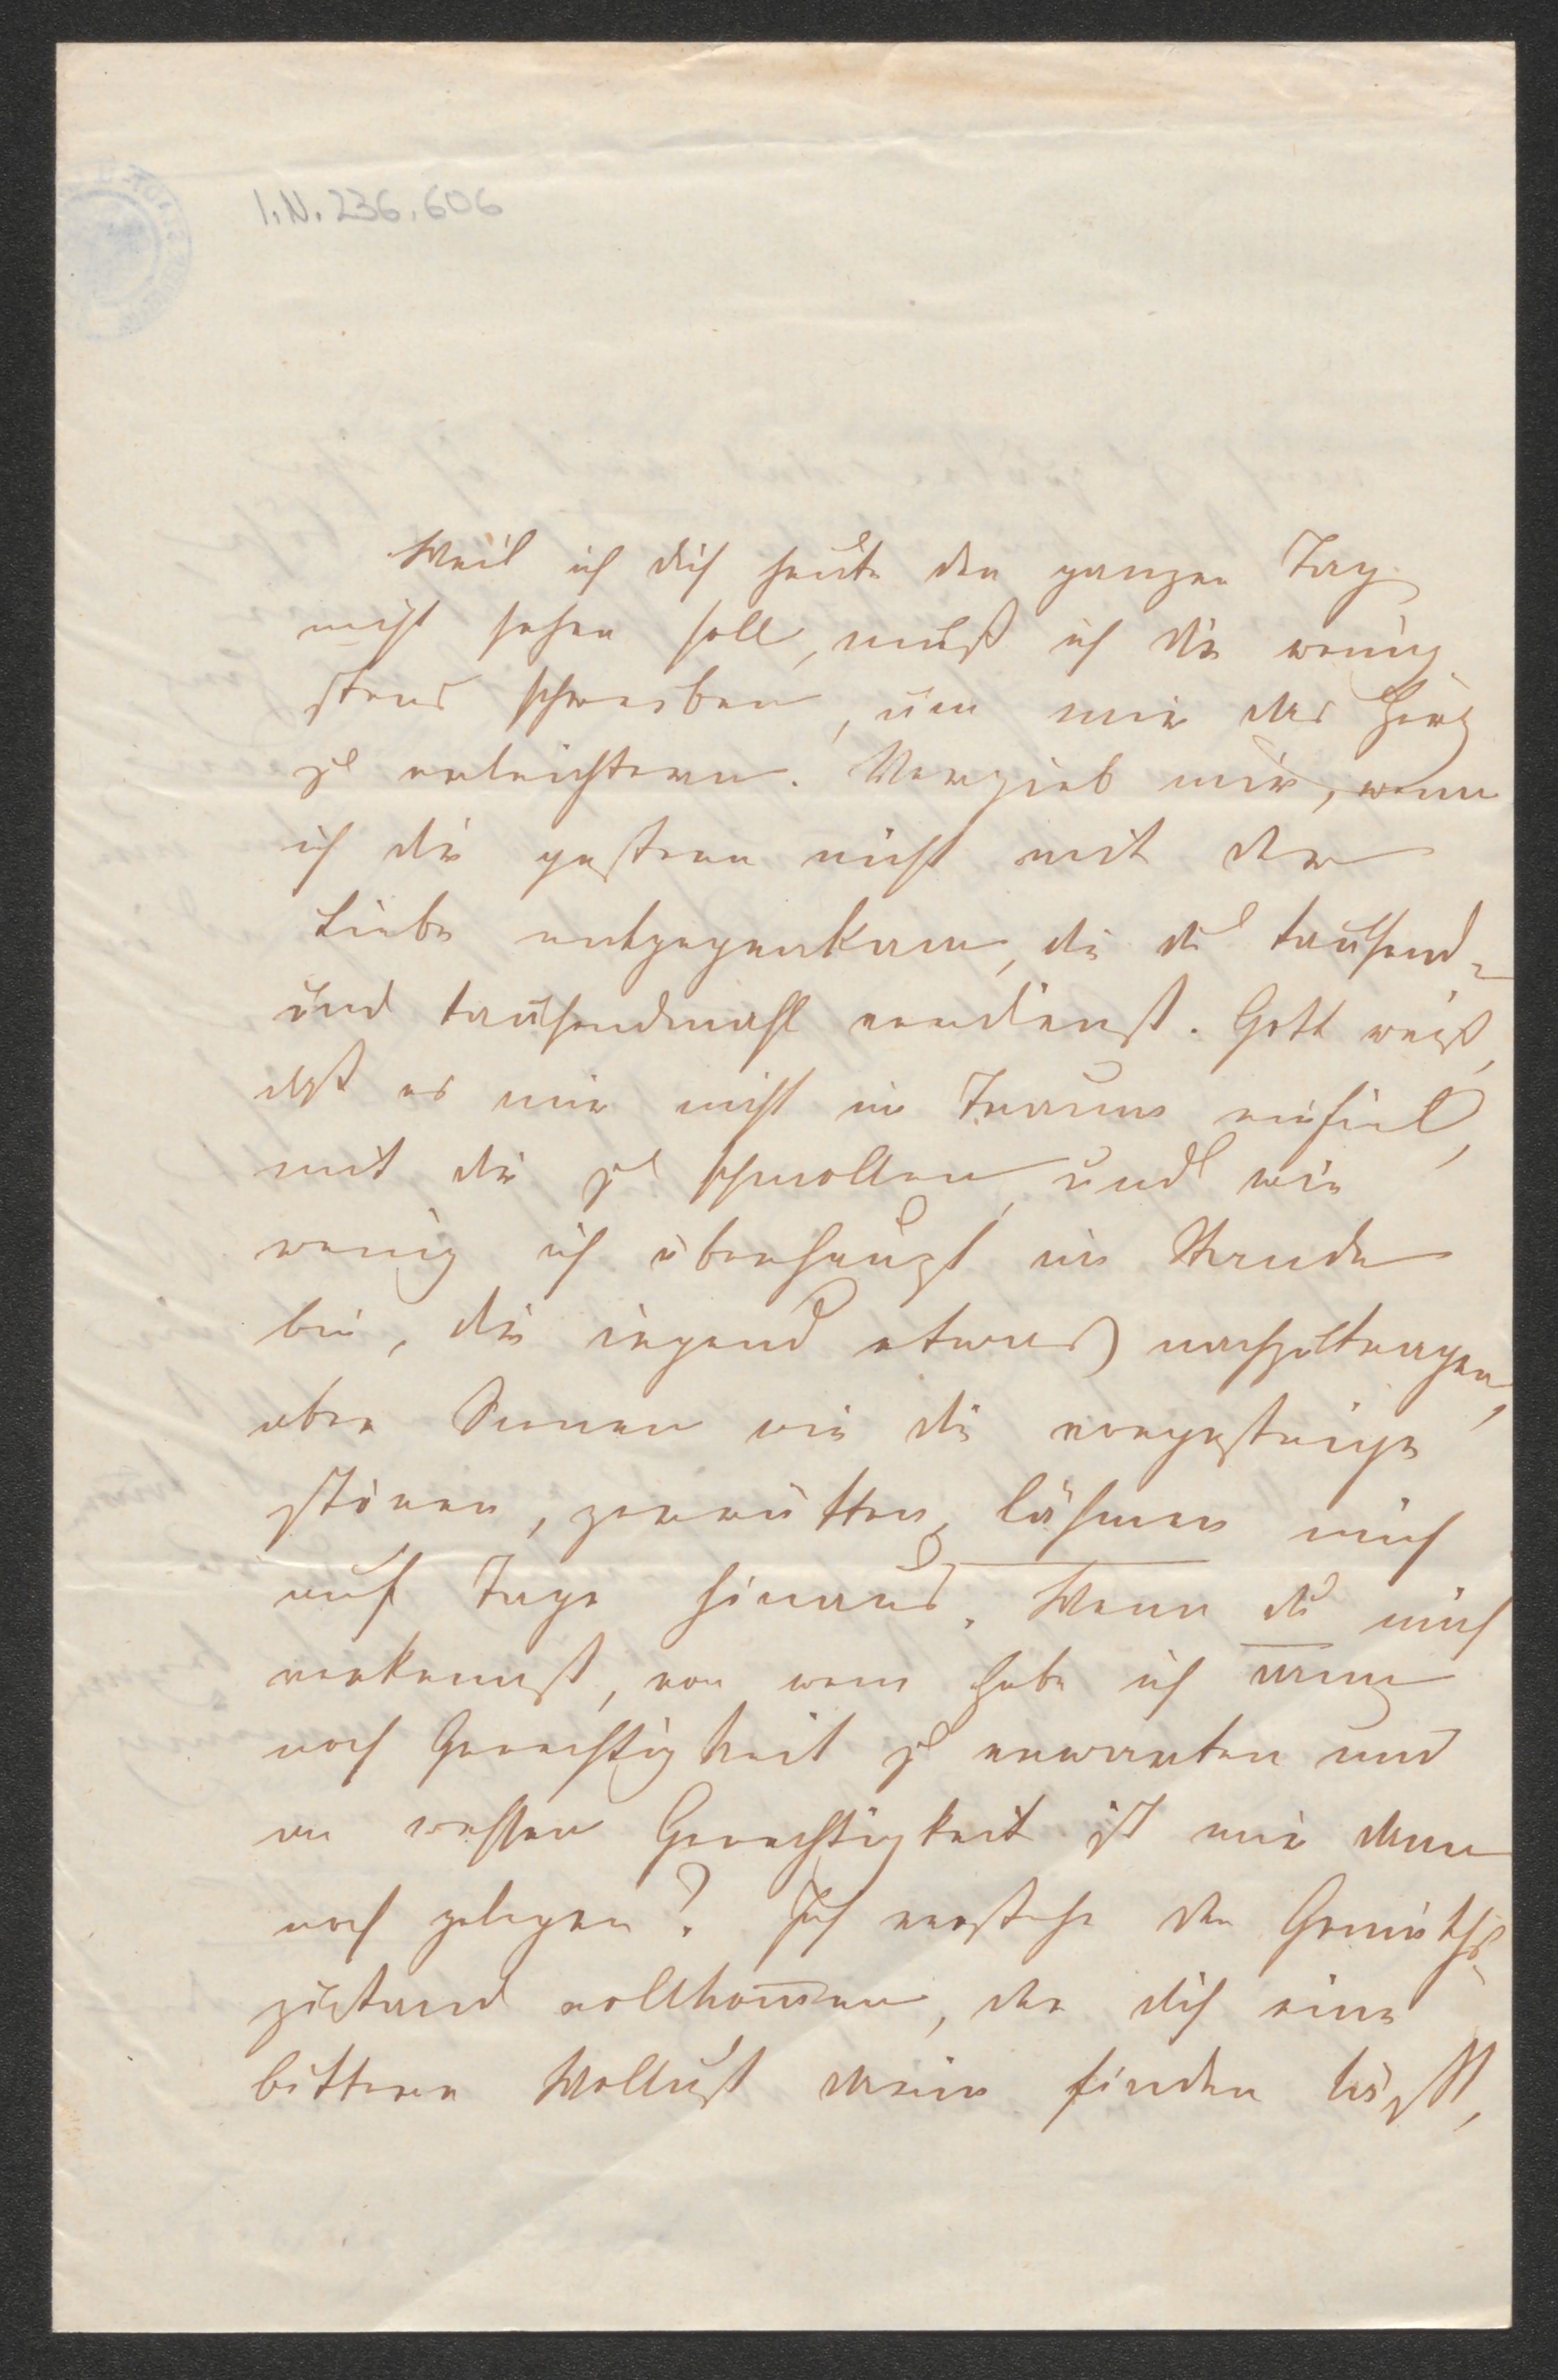 I.N. 236.606
Weil ich dich heute den ganzen Tag
nicht sehen soll, muß ich dir wenig
stens schreiben, um mir das Herz
zu erleichtern. Vergieb mir, wenn
ich dir gestern nicht mit der
Liebe entgegenkam, die du tausend-
und tausendmahl verdienst. Gott weiß,
daß es mir nicht im Traume einfiel,
mit dir zu schmollen, und wie
wenig ich überhaupt im Stande
bin, dir irgend etwas nachzutragen,
aber Scenen wie die vorgestrige
stören, zerrütten, lähmen mich
auf Tage hinaus. Wenn du mich
verkennst, von wem habe ich
noch Gerechtigkeit zu erwarten und
an wessen Gerechtigkeit ist mir dann
noch gelegen? Ich verstehe den Gemüths-
zustand vollkom̅en, der dich eine
bittere Wollust darin finden läßt,